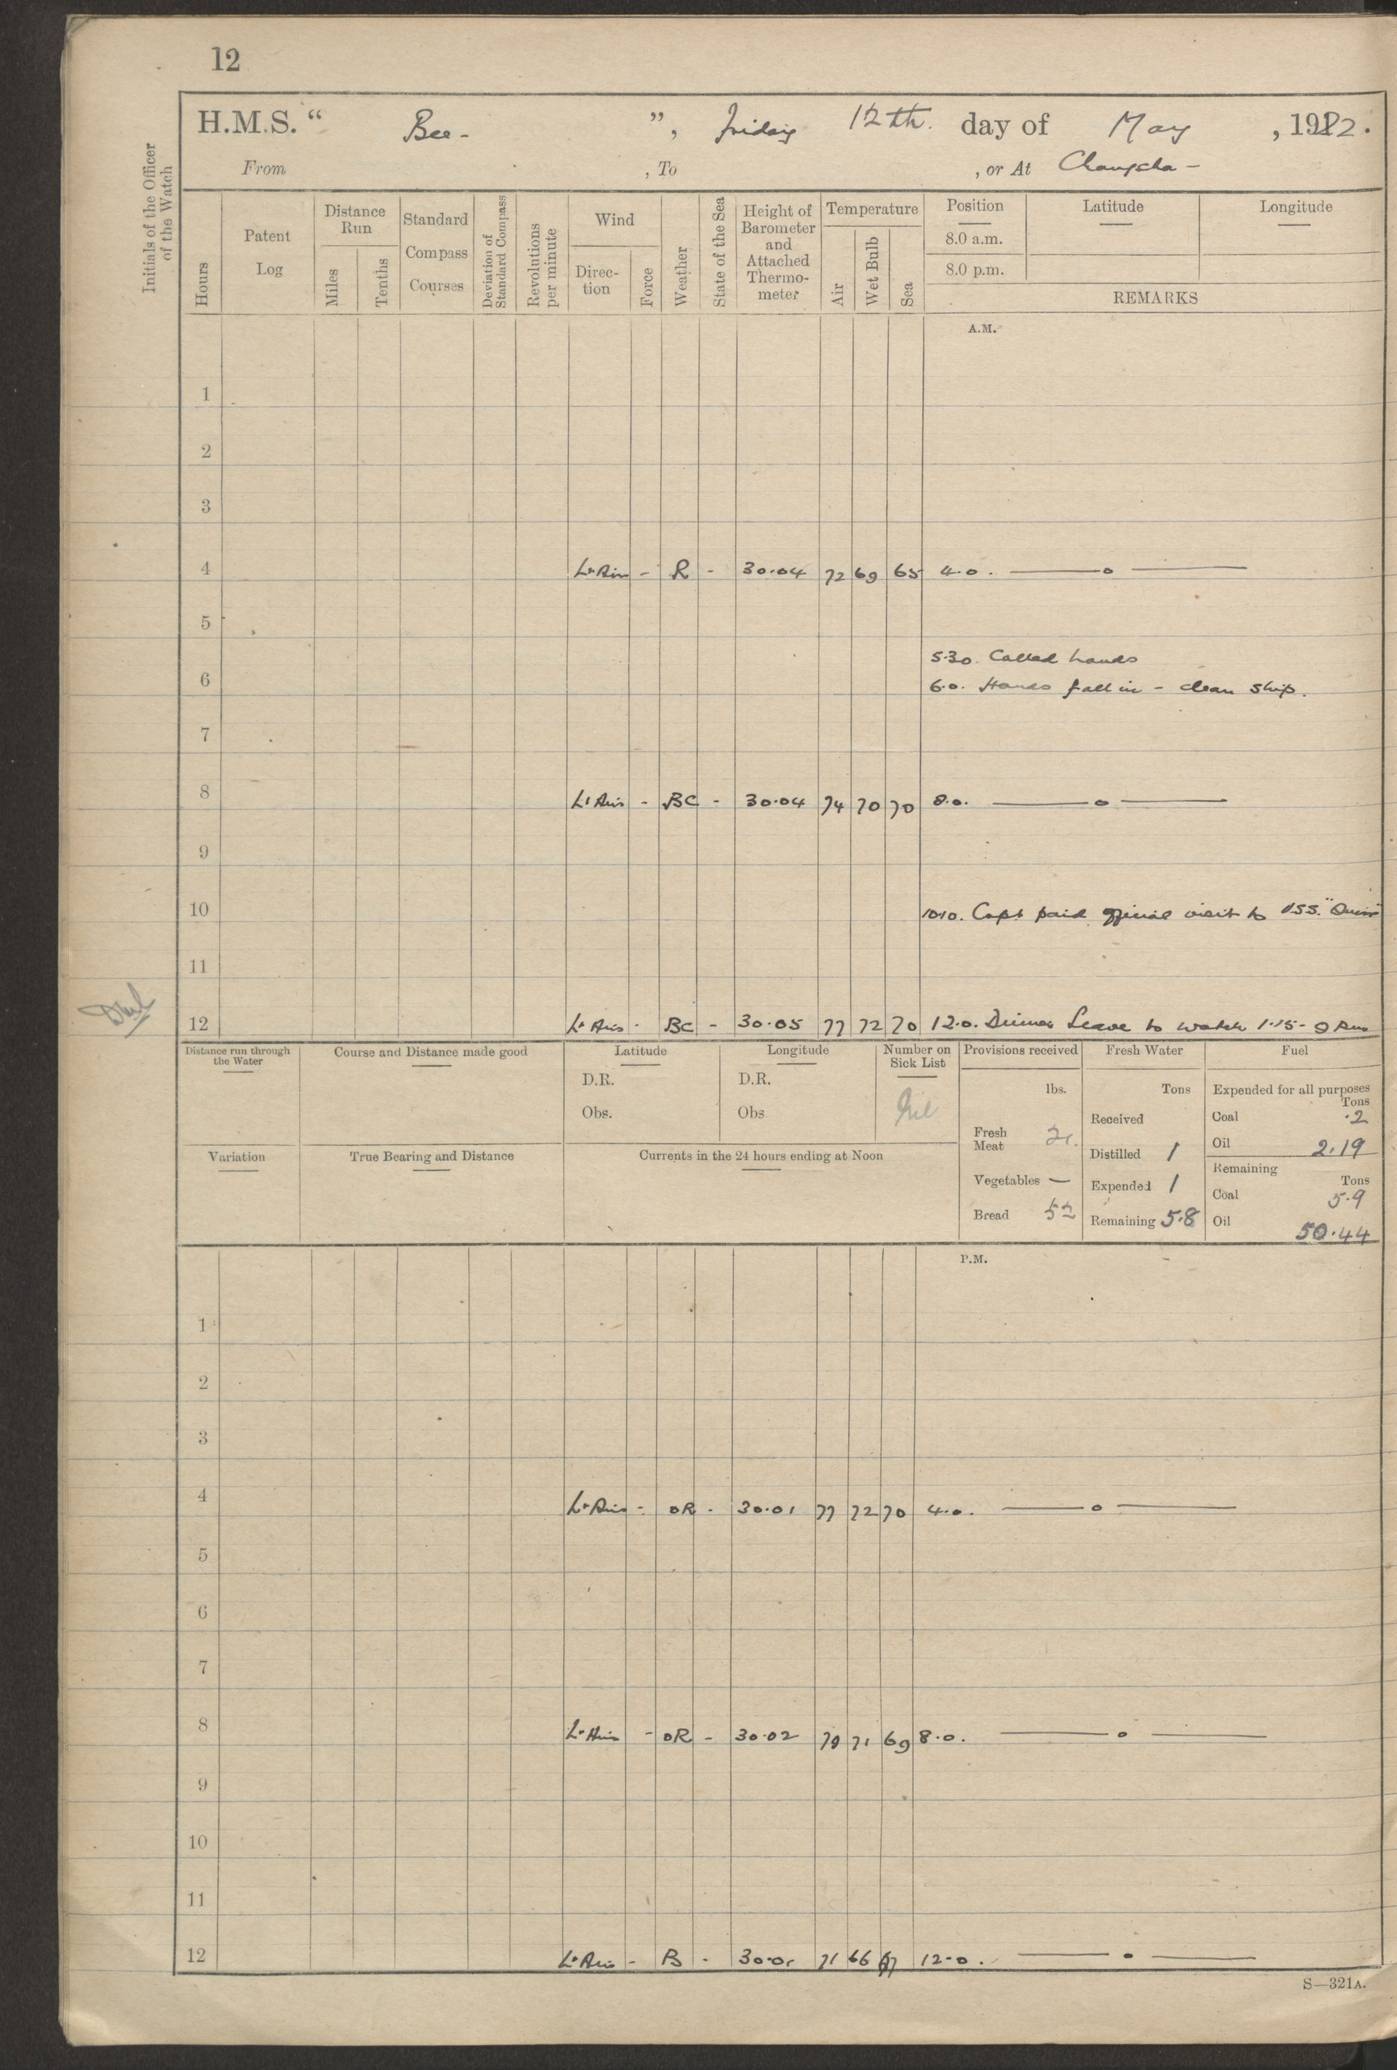 12
H.M.S. “ Bee - ”, Friday 12th. day of May , 1922.
From , To , or At Changsha -
Initials of the Officer of the Watch
Hours
Patent Log
Distance Run
Miles
Tenths
Standard Compass Courses
Deviation of Standard Compass
Revolutions per minute
Wind
Direc-tion
Force
Weather
State of the Sea
Height of Barometer and Attached Thermo-meter
Temperature
Air
Wet Bulb
Sea
Position
8.0 a.m.
8.0 p.m.
Latitude
Longitude
REMARKS
A.M.
1
2
3
4 Lt Airs - R - 30.04 72 69 65 4.0. —— o ——
5
5.30. Called hands
6 6.0. Hands fall in - clean ship.
7
8 Lt Airs - BC - 30.04 74 70 70 8.0. —— o ——
9
10 1010. Capt paid official visit to USS.
11
12 Lt Airs - BC - 30.05 77 72 70 12.0. Dinner Leave to watch 1.15 - 9 pm
Distance run through the Water
Course and Distance made good
Latitude
D.R.
Obs.
Longitude
D.R.
Obs
Number on Sick List
Nil
Provisions received
lbs.
Fresh Meat
Vegetables —
Bread 52
Fresh Water
Tons
Received
Distilled 1
Expended 1
Remaining 5.8
Fuel
Expended for all purposes
Tons
Coal .2
Oil 2.19
Remaining
Tons
Coal 5.9
Oil 50.44
Variation
True Bearing and Distance
Currents in the 24 hours ending at Noon
P.M.
1
2
3
4 Lt Airs - OR - 30.01 77 72 70 4.0. —— o ——
5
6
7
8 Lt Airs - OR - 30.02 79 71 69 8.0. —— o ——
9
10
11
12 Lt Airs - B - 30.01 71 66 67 12.0. —— o ——
S—321A.